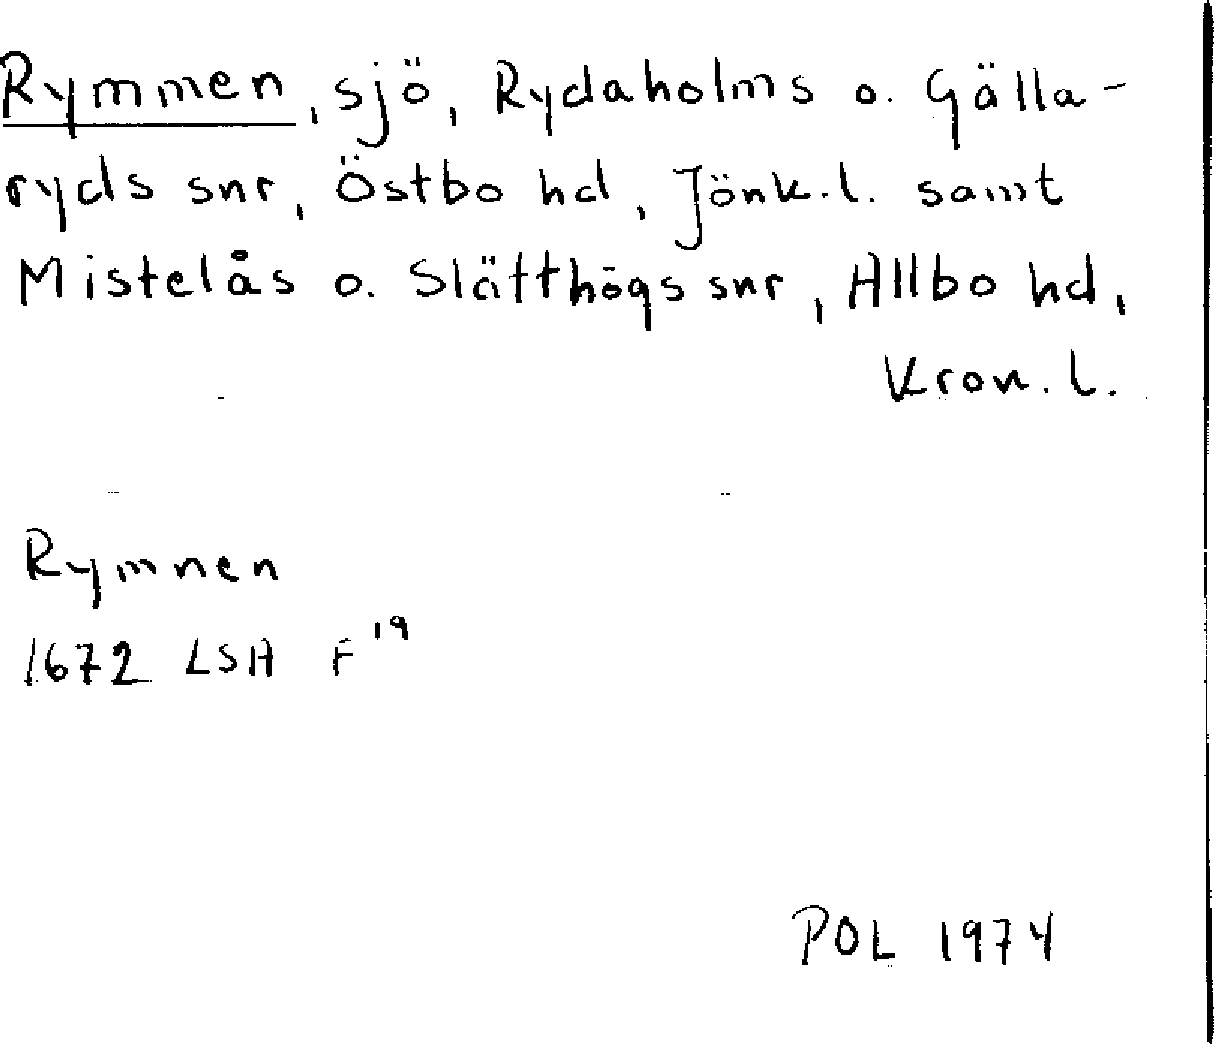 Rymmen, sjö, Rydaholms o. Gälla-
ryds snr, Östbo hd, Jönk.l. samt
Mistelås o. Slätthögs snr, Allbo hd,
Kron. l.
Rymnen
1672 LSA F19
POL 1974